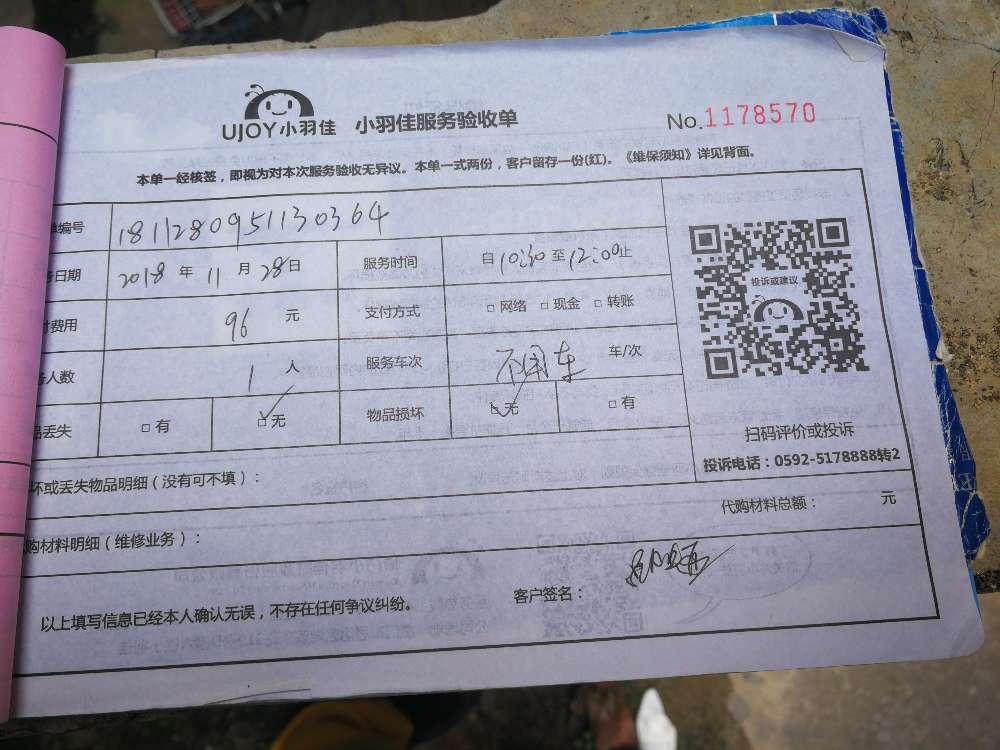 UJOY小羽佳 小羽佳服务验收单 No.1178570
本单一经核签，即视为对本次服务验收无异议。本单一式两份，客户留存一份(红)。《维保须知》详见背面。
单编号 1811280951130364
务日期 2018 年 11 月 28 日 服务时间 自 10:30 至 12:00 止
付费用 96 元 支付方式 □ 网络 □ 现金 □ 转账
务人数 1 人 服务车次 不用车 车/次
品丢失 □ 有 □ 无 物品损坏 □ 无 □ 有
投诉或建议
扫码评价或投诉
投诉电话：0592-5178888转2
坏或丢失物品明细（没有可不填）：
购材料明细（维修业务）： 代购材料总额： 元
以上填写信息已经本人确认无误，不存在任何争议纠纷。 客户签名：